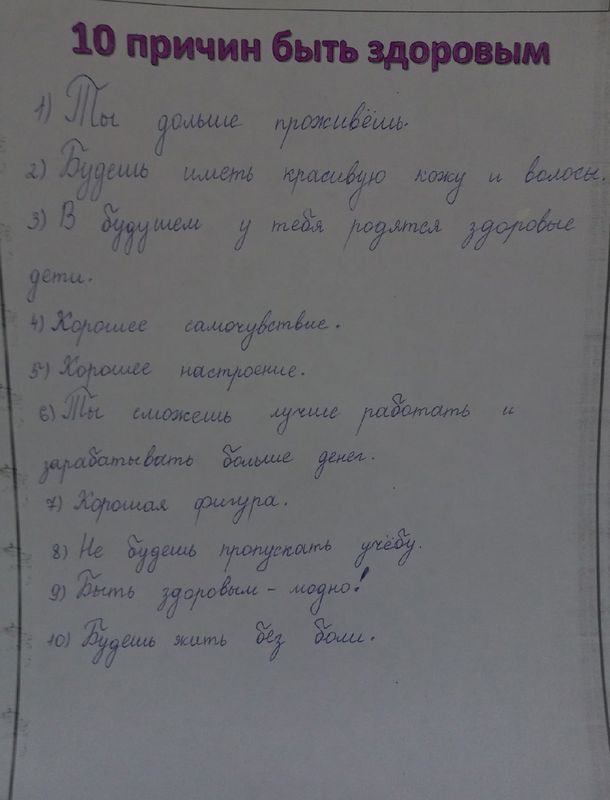 10 причин быть здоровым
1) Ты дольше проживёшь.
2) Будешь иметь красивую кожу и волосы.
3) В будушем у тебя родятся здоровые
дети.
4) Хорошее самочувствие.
5) Хорошее настроение.
6) Ты сможешь лучше работать и
зарабатывать больше денег.
7) Хорошая фигура.
8) Не будешь пропускать учёбу.
9) Быть здоровым - модно!
10) Будешь жить без боли.